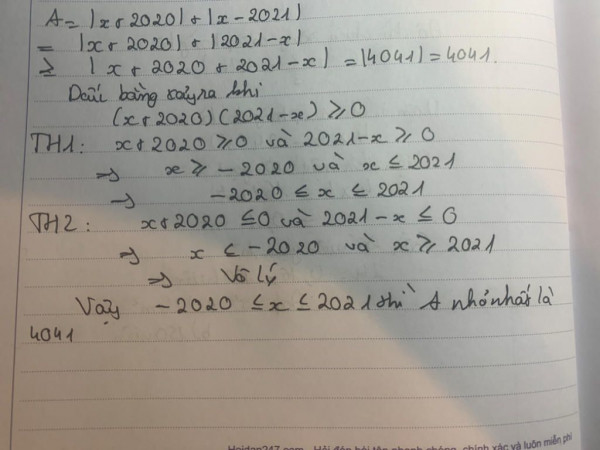 A = |x + 2020| + |x - 2021|
= |x + 2020| + |2021 - x|
≥ |x + 2020 + 2021 - x| = |4041| = 4041.
Dấu bằng xảy ra khi
(x + 2020)(2021 - x) ≥ 0
TH1: x + 2020 ≥ 0 và 2021 - x ≥ 0
=> x ≥ -2020 và x ≤ 2021
=> -2020 ≤ x ≤ 2021
TH2: x + 2020 ≤ 0 và 2021 - x ≤ 0
=> x ≤ -2020 và x ≥ 2021
=> Vô lý
Vậy -2020 ≤ x ≤ 2021 thì A nhỏ nhất là
4041
Hoidap247.com - Hỏi đáp bài tập nhanh chóng, chính xác và luôn miễn phí